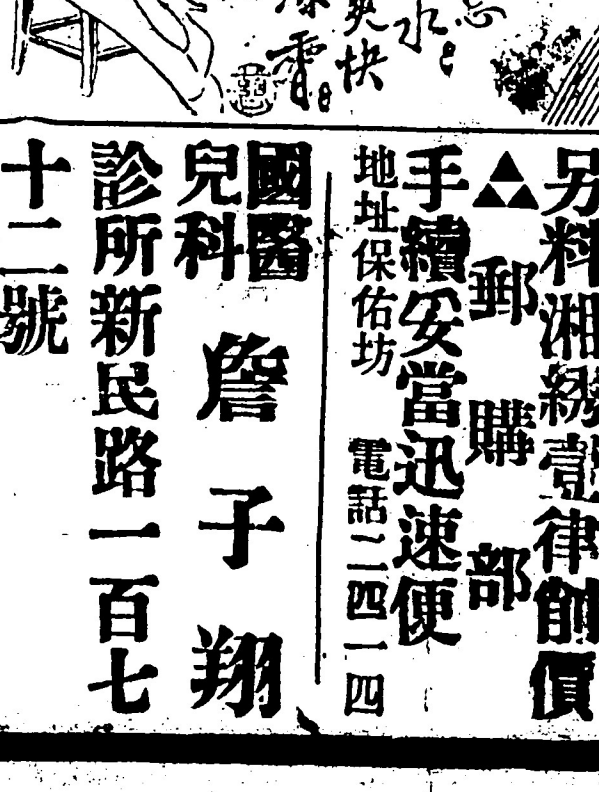 水
爽快
霜
另料湘繡壹律削價
郵購部
手續妥當迅速便
地址保佑坊 電話二四一四
國醫
兒科 詹子翔
診所新民路一百七
十二號